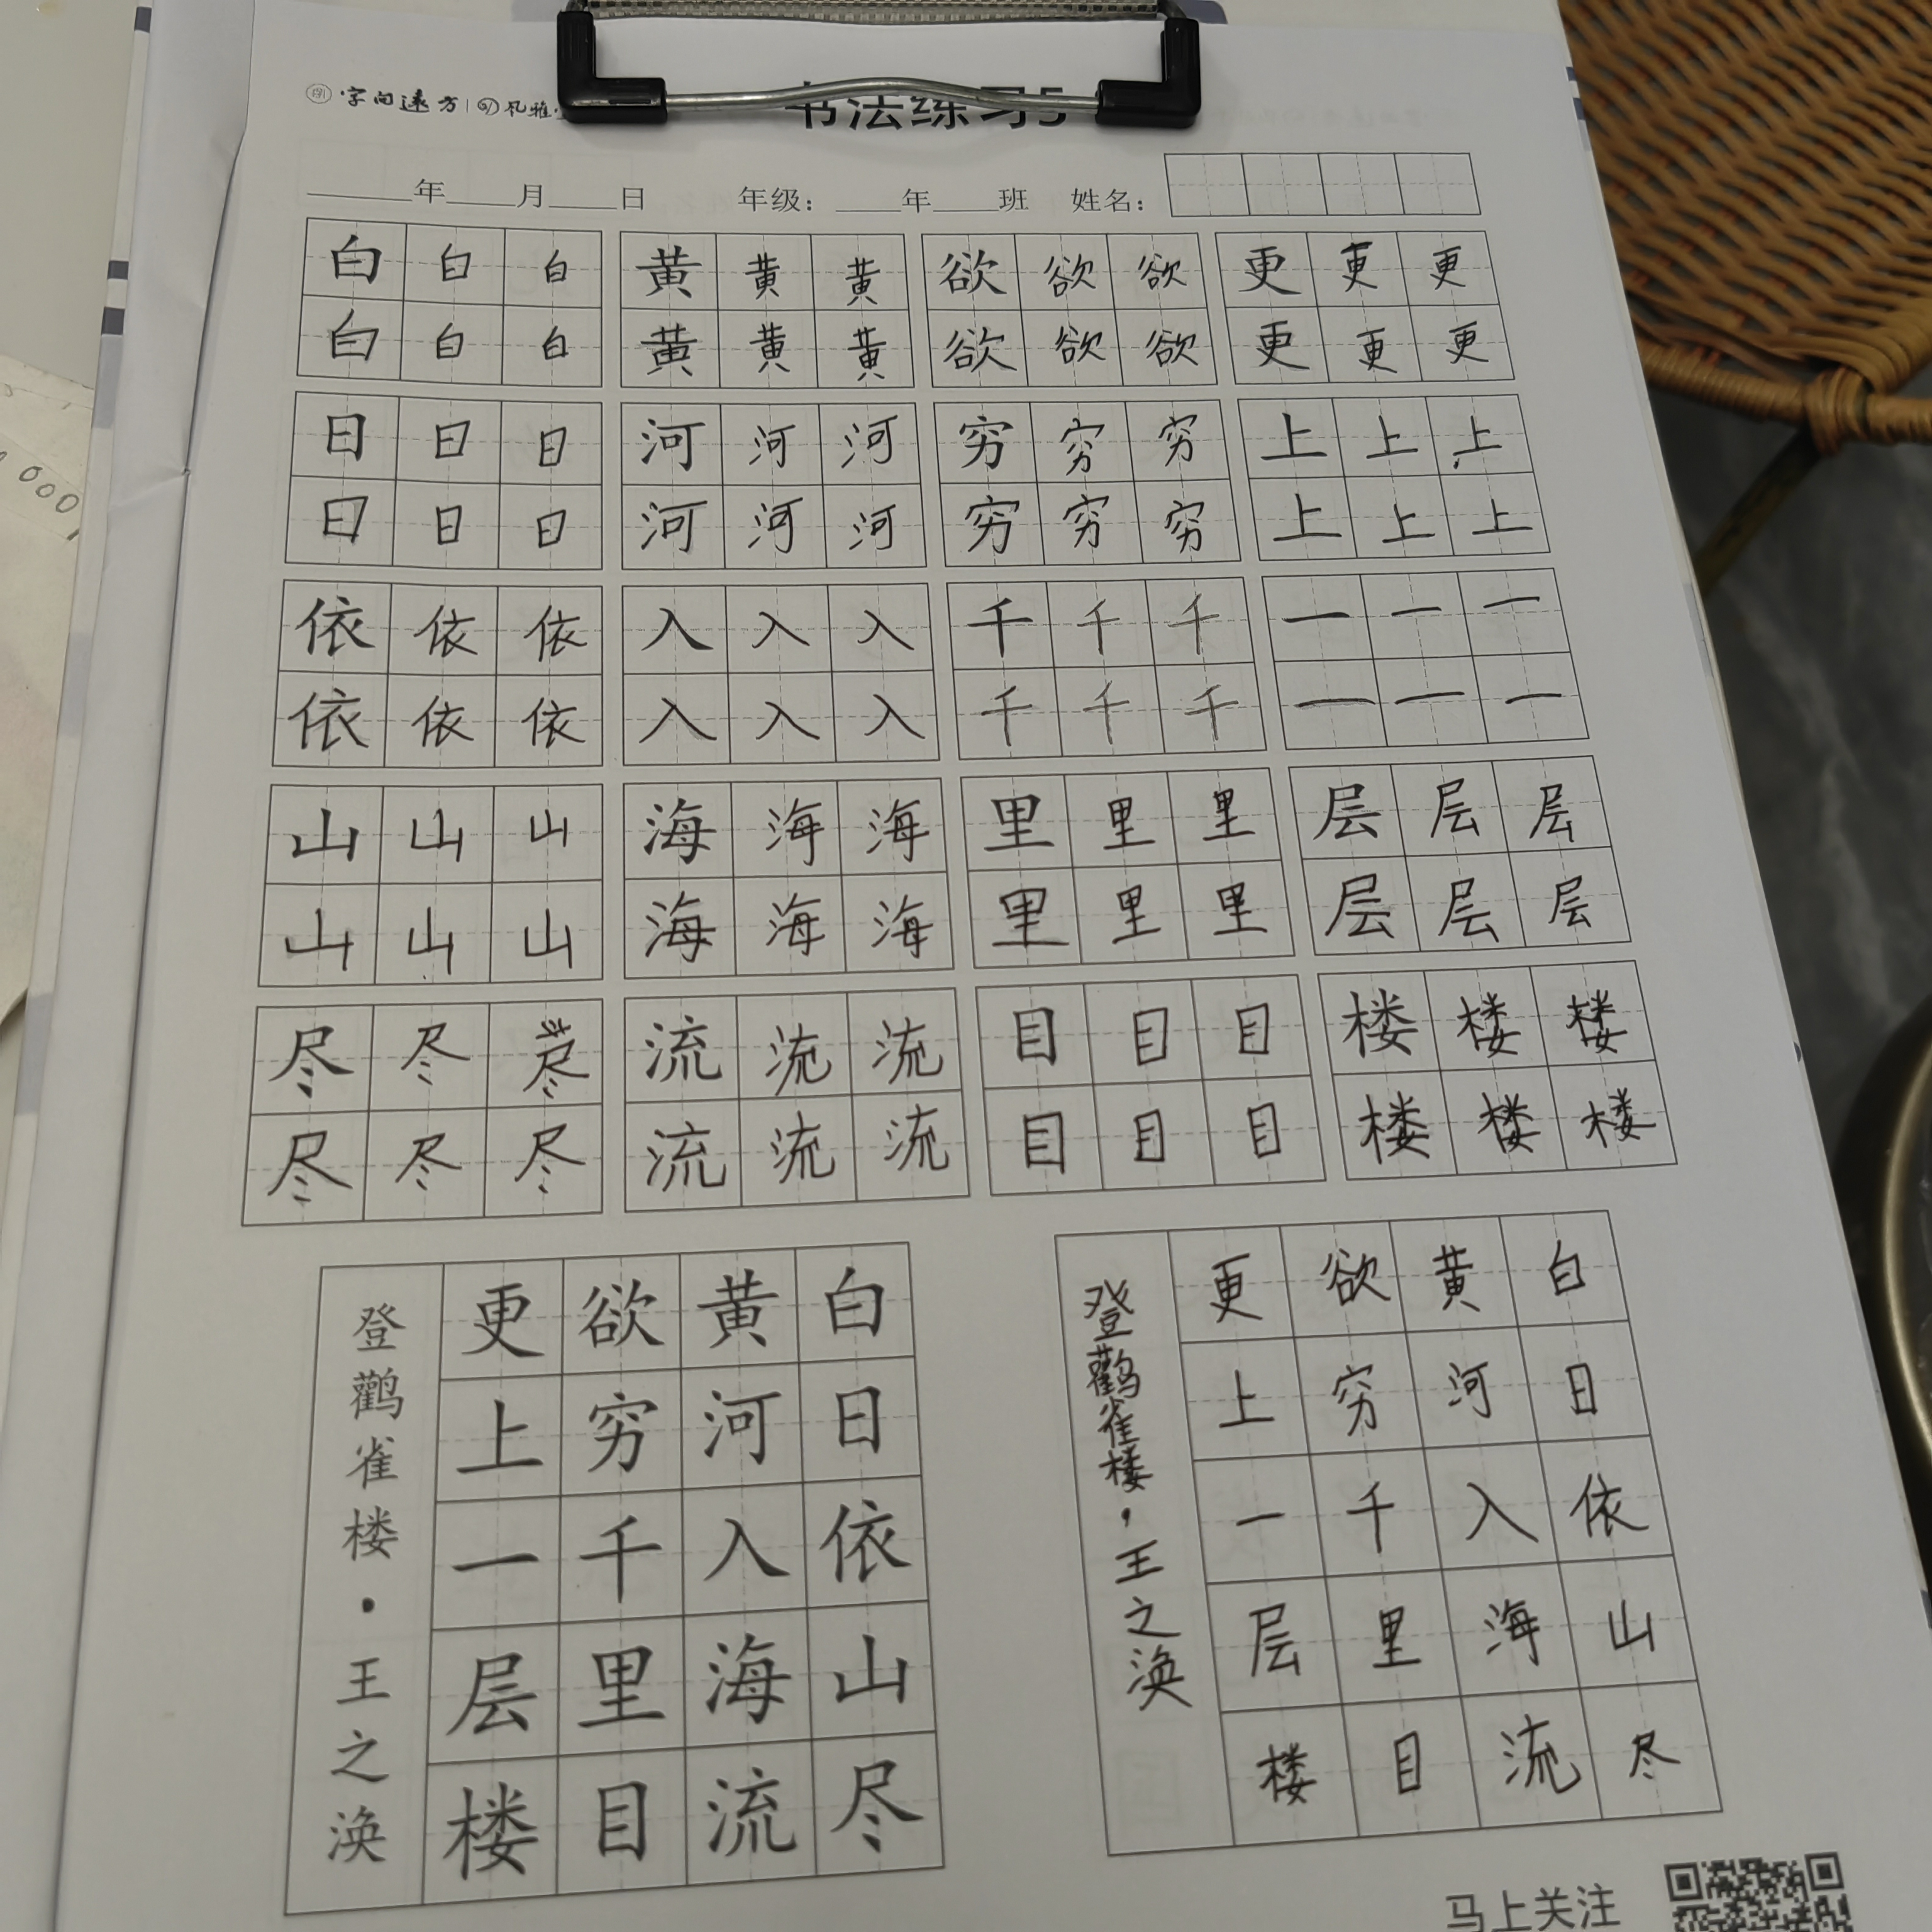 字向远方 凡雅
书法练习5
年 月 日 年级： 年 班 姓名：
白 白 白 黄 黄 黄 欲 欲 欲 更 更 更
白 白 白 黄 黄 黄 欲 欲 欲 更 更 更
日 日 日 河 河 河 穷 穷 穷 上 上 上
日 日 日 河 河 河 穷 穷 穷 上 上 上
依 依 依 入 入 入 千 千 千 一 一 一
依 依 依 入 入 入 千 千 千 一 一 一
山 山 山 海 海 海 里 里 里 层 层 层
山 山 山 海 海 海 里 里 里 层 层 层
尽 尽 尽 流 流 流 目 目 目 楼 楼 楼
尽 尽 尽 流 流 流 目 目 目 楼 楼 楼
白日依山尽
黄河入海流
欲穷千里目
更上一层楼
登鹳雀楼·王之涣
白日依山尽
黄河入海流
欲穷千里目
更上一层楼
登鹳雀楼·王之涣
马上关注